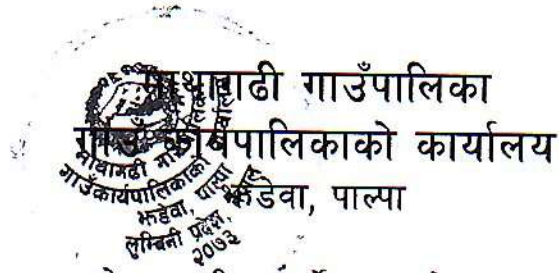 माथागढी गाउँपालिका
गाउँ कार्यपालिकाको कार्यालय
झडेवा, पाल्पा
माथागढी गाउँपालिका
गाउँकार्यपालिकाको कार्यालय
झडेवा, पाल्पा
लुम्बिनी प्रदेश,
२०७३